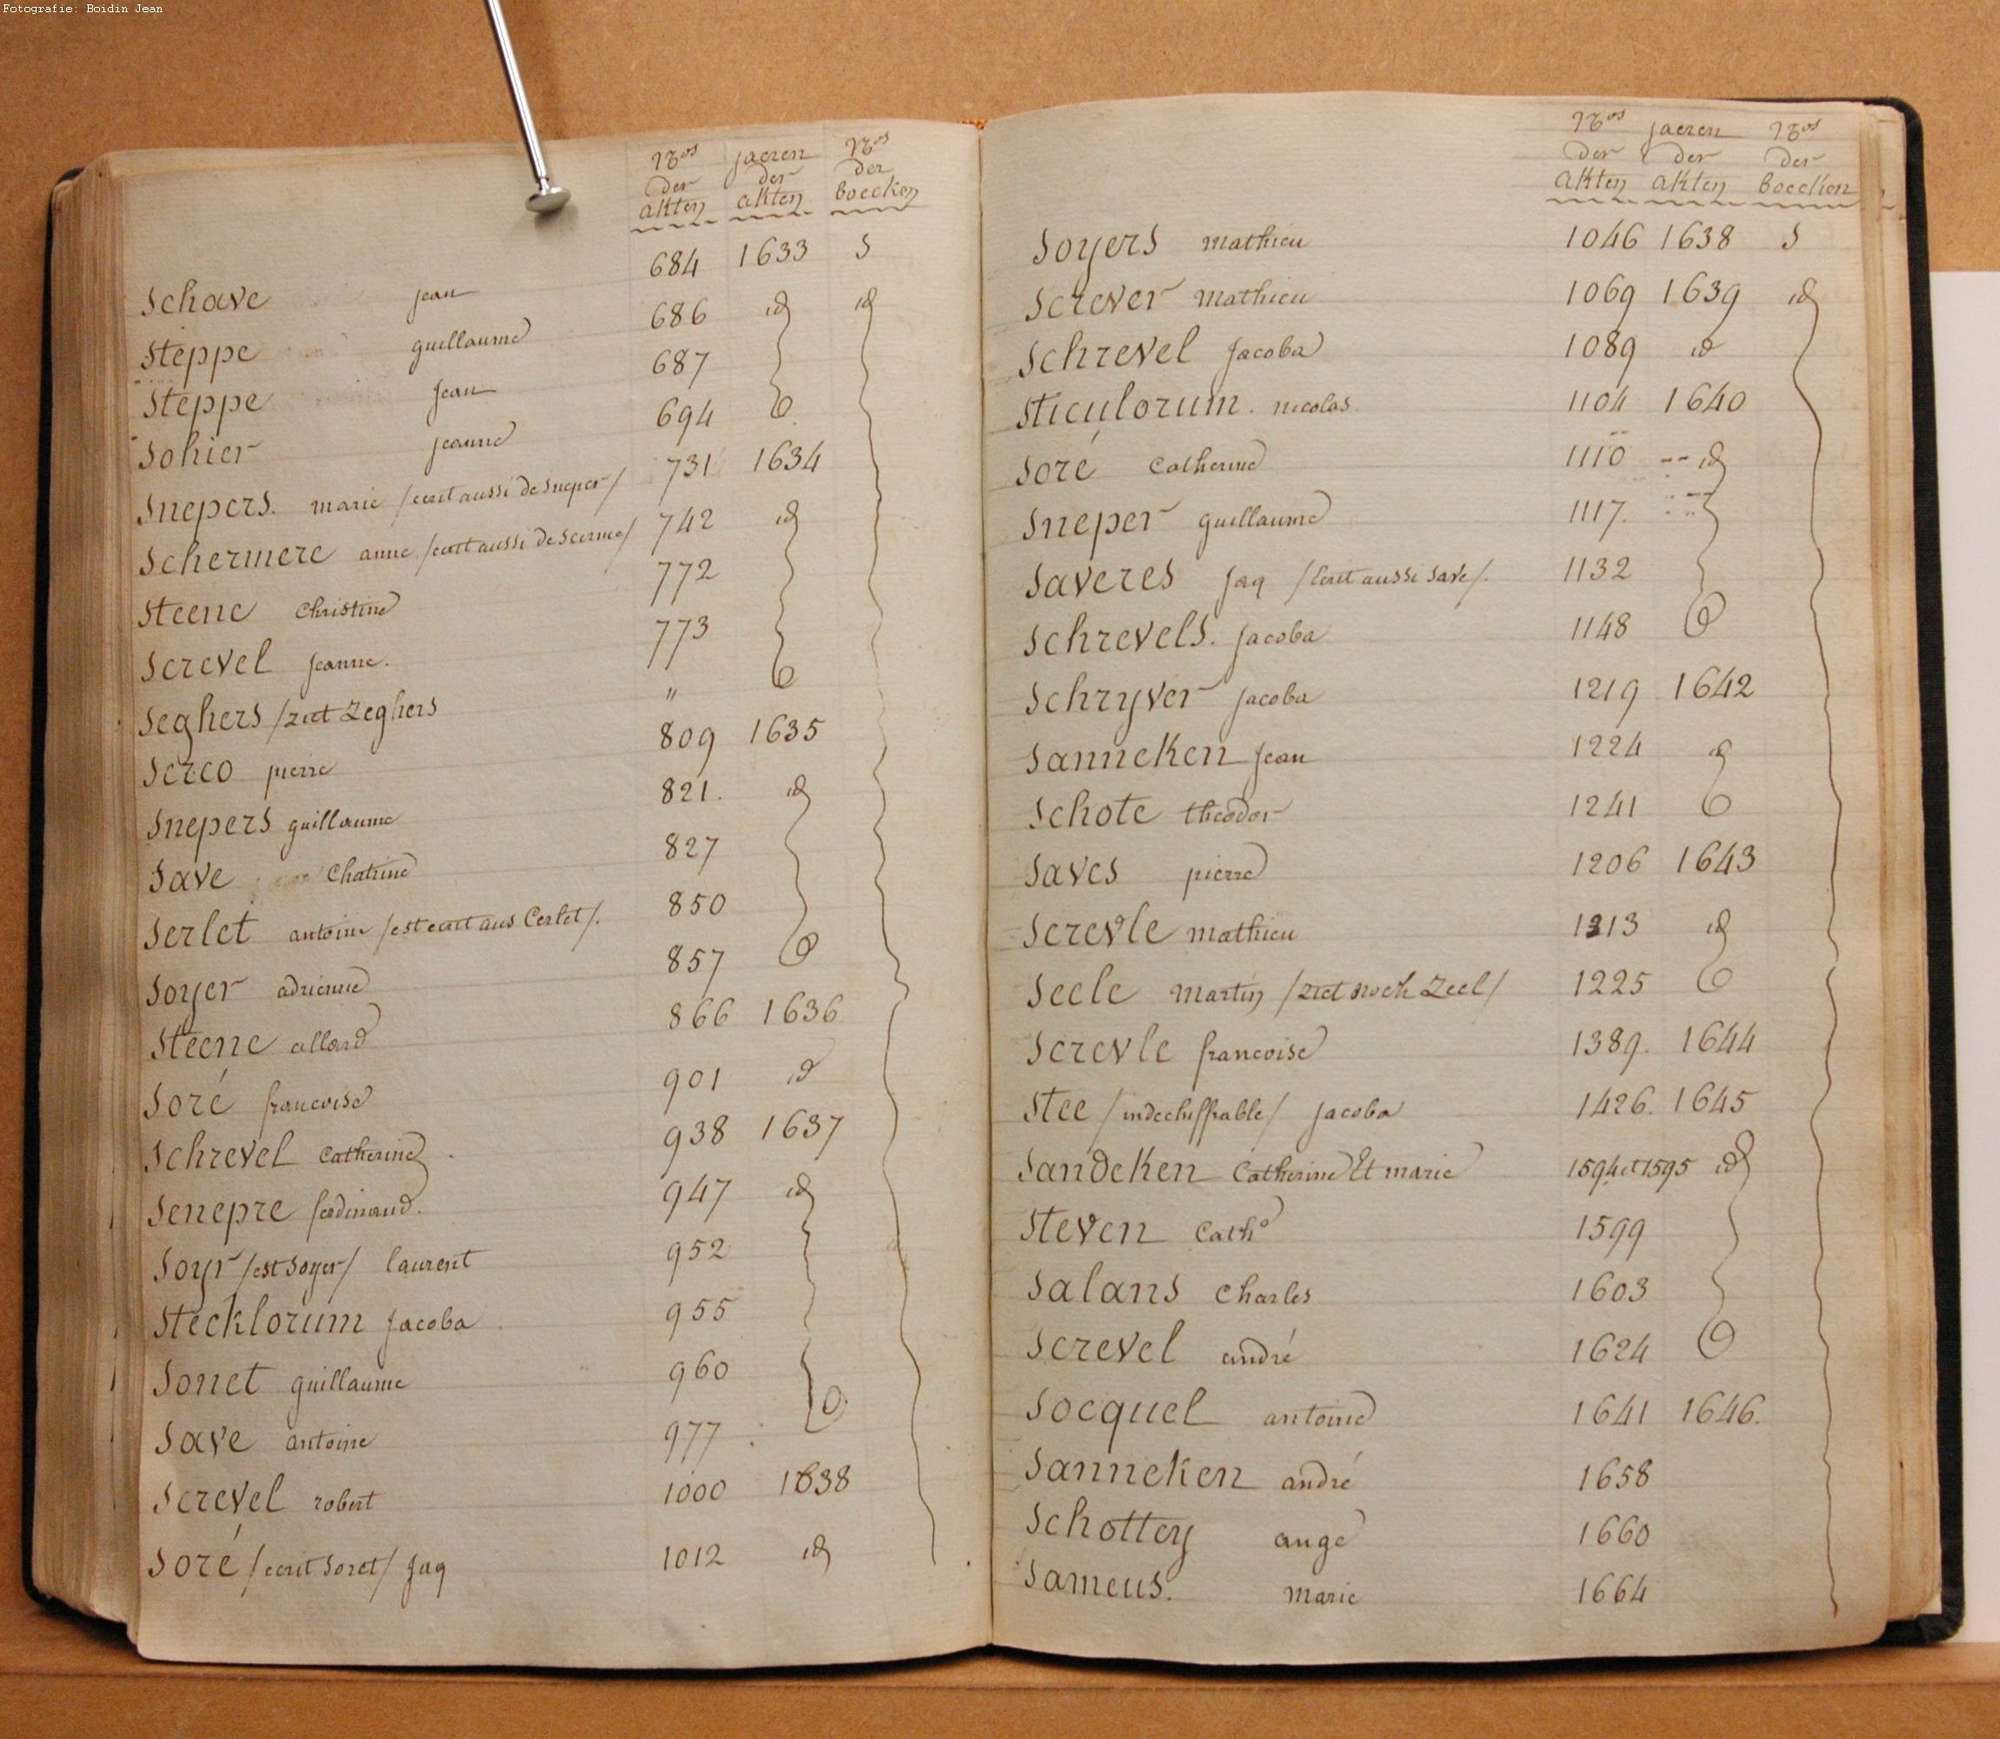 Fotografie: Boidin Jean
Nros jaeren Nros
der der der
akten akten boecken
Schave jean 684 1633 5
Steppe guillaume 686 id id
Steppe jean 687
Sohier jeanne 694
Snepers. marie /ecrit aussi de Sneper/ 731 1634
Schermere anne /ecrit aussi de Scerme/ 742 id
Steene Christine 772
Screvel jeanne. 773
Seghers /ziet Zeghers "
Serco pierre 809 1635
Snepers guillaume 821. id
Save Chatrine 827
Serlet antoine /est ecrit aus Cerlet/. 850
Soyer adrienne 857
Steene allard 866 1636
Soré francoise 901 id
Schrevel Catherine 938 1637
Senepre ferdinand. 947 id
Soyr /est Soyer/ laurent 952
Stecklorum Jacoba 955
Sonet guillaume 960
Save antoine 977
Screvel robert 1000 1638
Soré /ecrit Soret/ Jaq 1012 id
Nros jaeren Nros
der der der
akten akten boecken
Soyers mathieu 1046 1638 5
Screver mathieu 1069 1639 id
Schrevel Jacoba 1089 id
Sticulorum. nicolas. 1104 1640
Soré Catherine 1110 -- id
Sneper guillaume 1117.
Saveres Jaq /Ecrit aussi Save/. 1132
Schrevels. Jacoba 1148
Schryver Jacoba 1219 1642
Sanneken Jean 1224 id
Schote theodor 1241
Saves pierre 1206 1643
Screvle mathieu 1213 id
Seele Martin /ziet noch Zeel/ 1225
Screvle francoise 1389. 1644
Stee /indechiffrable/ Jacoba 1426. 1645
Sandeken Catherine Et marie 1594 et 1595 id
Steven Cath° 1599
Salans Charles 1603
Screvel andré 1624
Socquel antoine 1641 1646.
Sanneken andré 1658
Schottey ange 1660
Sameus. Marie 1664